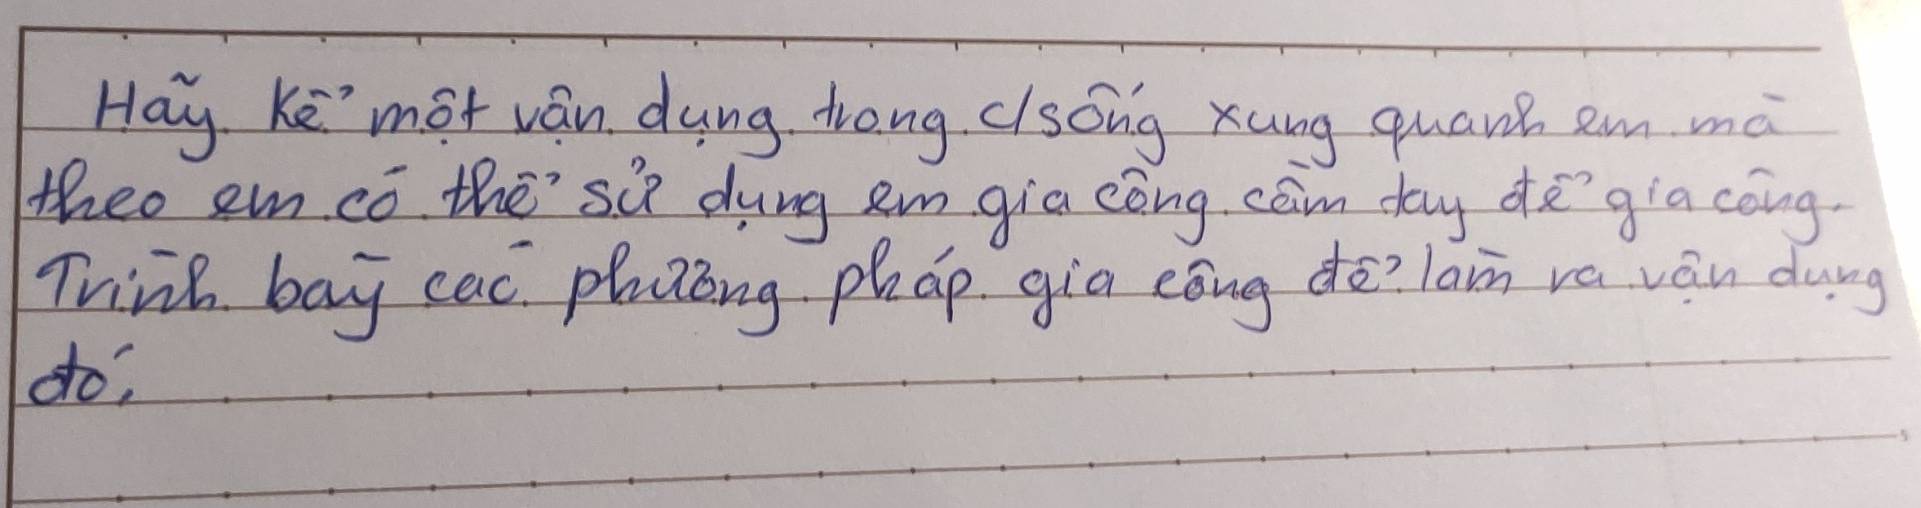 Hãy kể một vận dụng trong đ/sống xung quanh em mà
theo em có thể sử dụng em gia công cầm tay để gia công.
Trình bày các phương pháp gia công để làm ra vận dụng
đó.